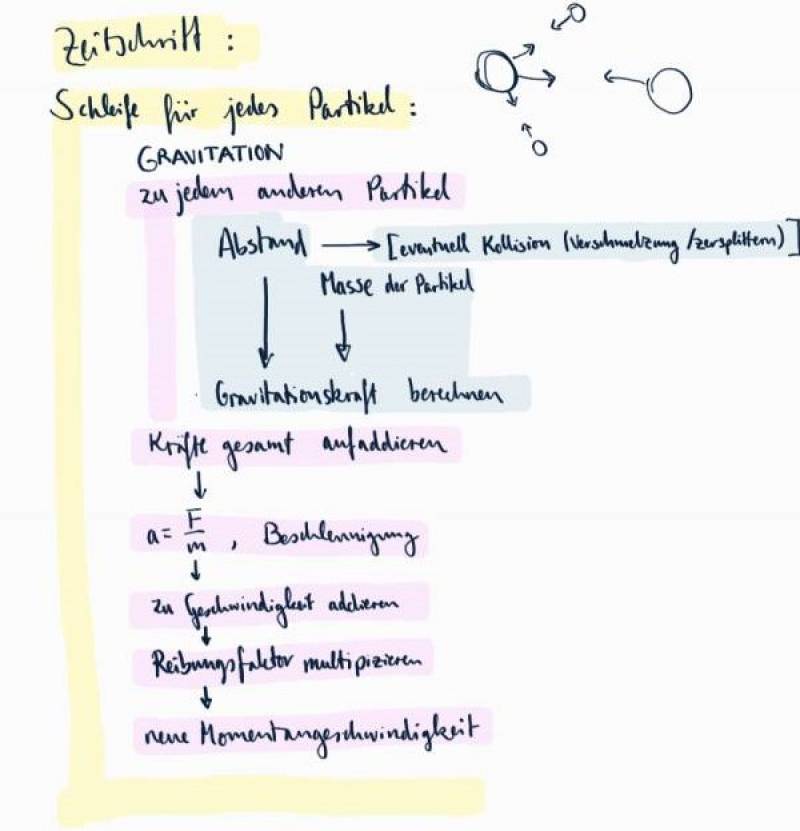 Zeitschritt :
Schleife für jedes Partikel :
GRAVITATION
zu jedem anderen Partikel
Abstand → [eventuell Kollision (Verschmelzung /zersplittern)]
Masse der Partikel
↓ ↓
Gravitationskraft berechnen
Kräfte gesamt aufaddieren
↓
a = F/m , Beschleunigung
↓
zu Geschwindigkeit addieren
↓
Reibungsfaktor multipizieren
↓
neue Momentangeschwindigkeit